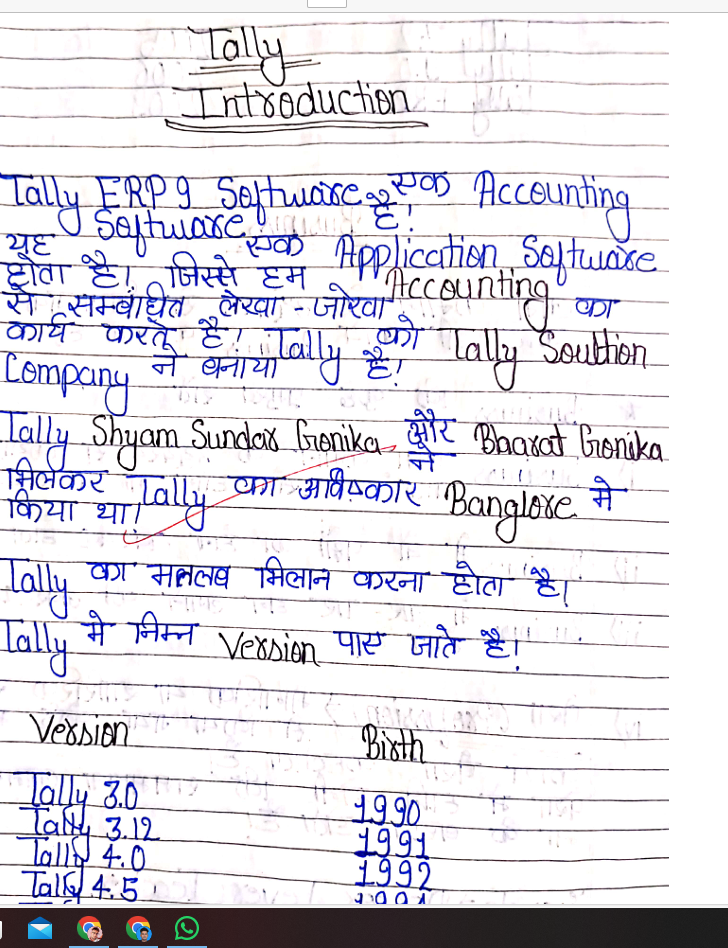 Tally
Introduction
Tally ERP 9 Software एक Accounting
Software है!
यह एक Application Software
होता है। जिससे हम Accounting
से सम्बंधित लेखा-जोखा का
कार्य करते है। Tally को Tally Soultion
Company ने बनाया है!
Tally Shyam Sundar Gonika और Bharat Gonika
ने
मिलकर Tally का आविष्कार Banglore मे
किया था।
Tally का मतलब मिलान करना होता है।
Tally मे निम्न Version पाए जाते है।
Version Birth
Tally 3.0 1990
Tally 3.12 1991
Tally 4.0 1992
Tally 4.5